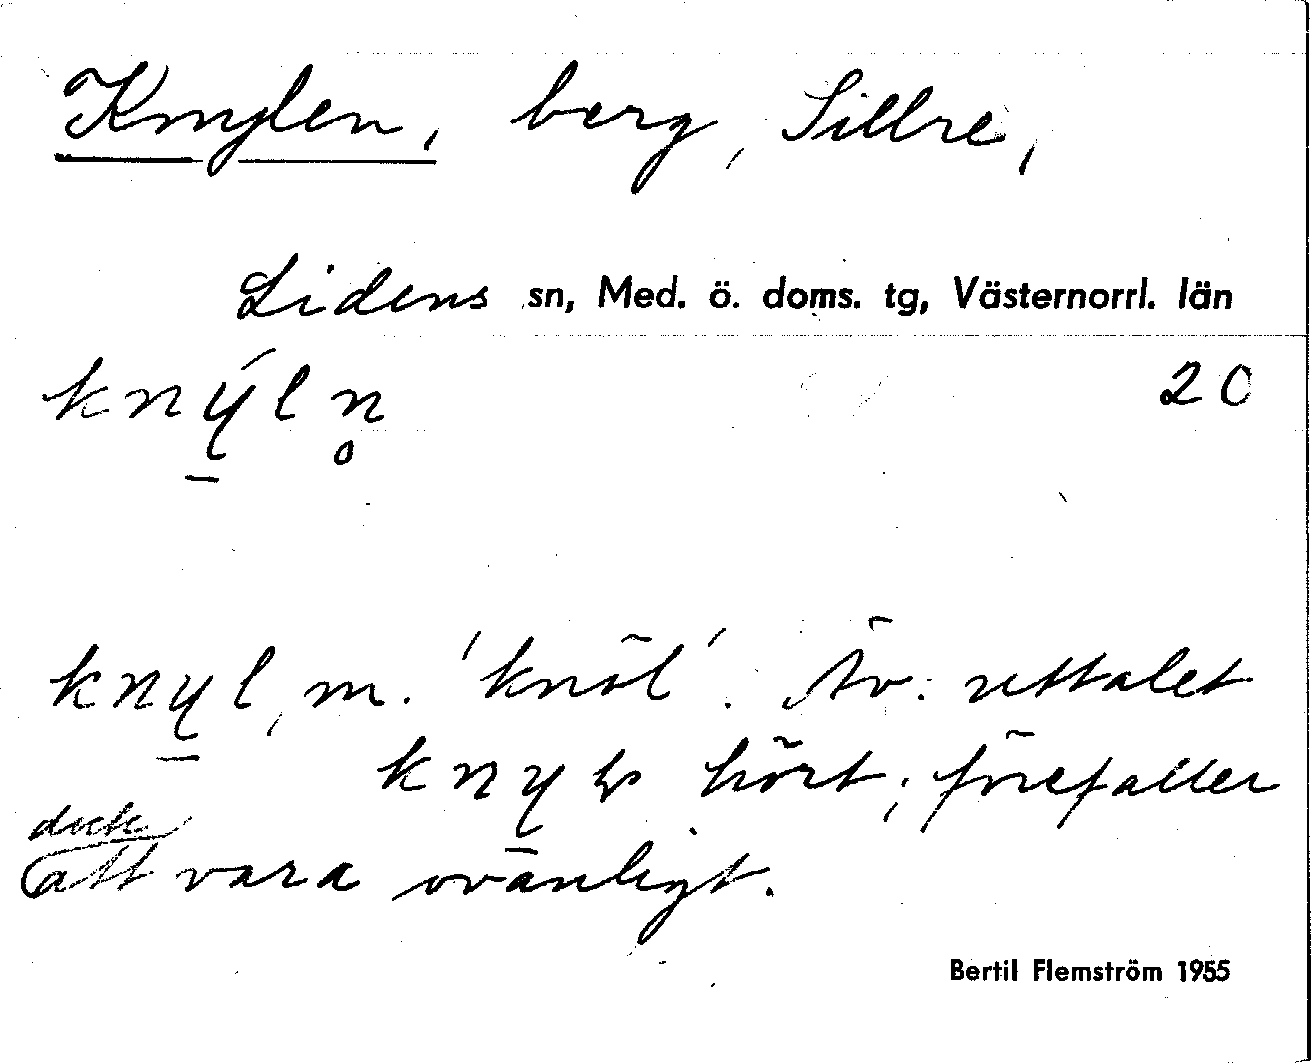 Knylen, berg, Sillre,
Lidens sn, Med. ö. doms. tg, Västernorrl. län
kný̱ln̥ 20
kny̱l, m. 'knöl'. Äv. uttalet
kny̱ɽ hört; förefaller
dock
att vara ovanligt.
Bertil Flemström 1955